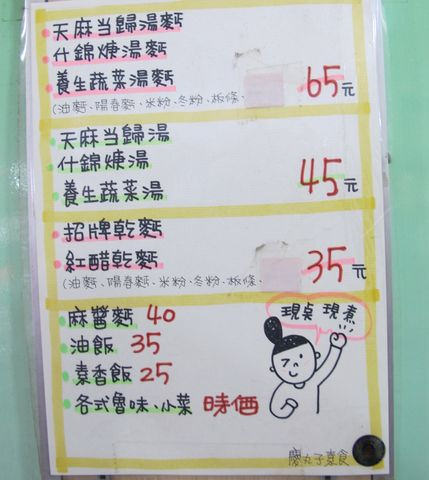 天麻当歸湯麵
什錦焿湯麵
養生蔬菜湯麵 65元
(油麵、陽春麵、米粉、冬粉、板條、
天麻当歸湯
什錦焿湯
養生蔬菜湯 45元
招牌乾麵
紅醋乾麵 35元
(油麵、陽春麵、米粉、冬粉、板條、
麻醬麵 40
油飯 35
素香飯 25
各式魯味、小菜 時価
現桌 現煮
廖丸子素食